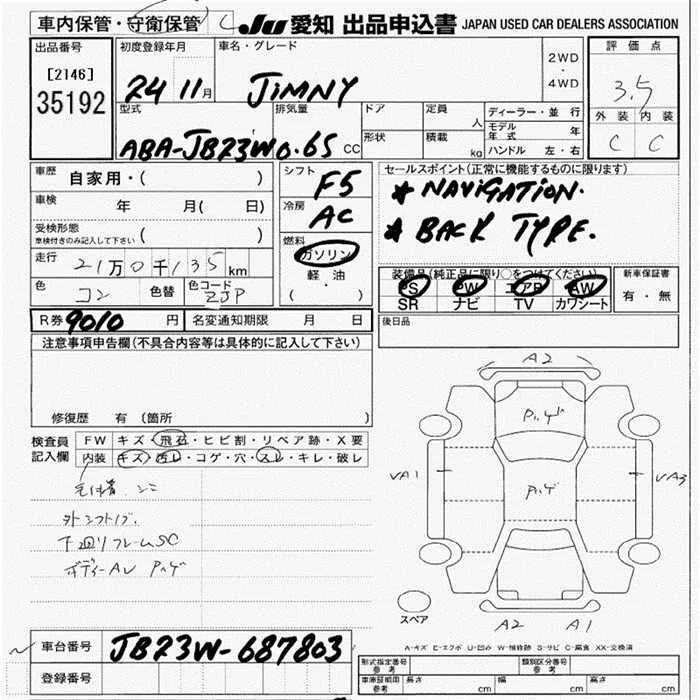 車内保管・守衛保管
JU 愛知 出品申込書 JAPAN USED CAR DEALERS ASSOCIATION
出品番号
[2146]
35192
初度登録年月
24 11月
車名・グレード
JIMNY
2WD
・
4WD
評価点
3.5
外装 内装
C C
型式
ABA-JB23W
排気量
0.65 CC
ドア
形状
定員 人
積載 kg
ディーラー・並行
モデル年式 年
ハンドル 左・右
車歴
自家用・( )
車検 年 月( 日)
受検形態
車検付きのみ記入して下さい ( )
走行 21万0千135km
色 コン 色替
色コード ZJP
シフト
F5
冷房
AC
燃料
ガソリン
・
軽油
( ・ )
セールスポイント(正常に機能するものに限ります)
* NAViGATiON.
* BACK TYPE.
装備品(純正品に限り○をつけてください)
PS PW エアB AW
SR ナビ TV カワシート
新車保証書
有・無
R券 9010 円
名変通知期限 月 日
後日品
注意事項申告欄(不具合内容等は具体的に記入して下さい)
修復歴 有(箇所 )
検査員記入欄
FW キズ・飛石・ヒビ割・リペア跡・X要
内装 キズ・汚レ・コゲ・穴・スレ・キレ・破レ
外シフトノブ
下回りフレームSC
A2
VA1
VA3
スペア
A2 A1
A-キズ E-エクボ U-凹み W-補修跡 S-サビ C-腐食 XX-交換済
車台番号 JB23W-687803
登録番号
型式指定番号
参考
類別区分番号
参考
車庫証明用
参考
長さ cm 幅 cm 高さ cm